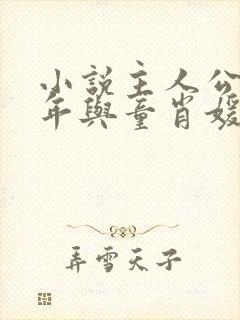 小說主人公
年與童肖媛
弄雪天子